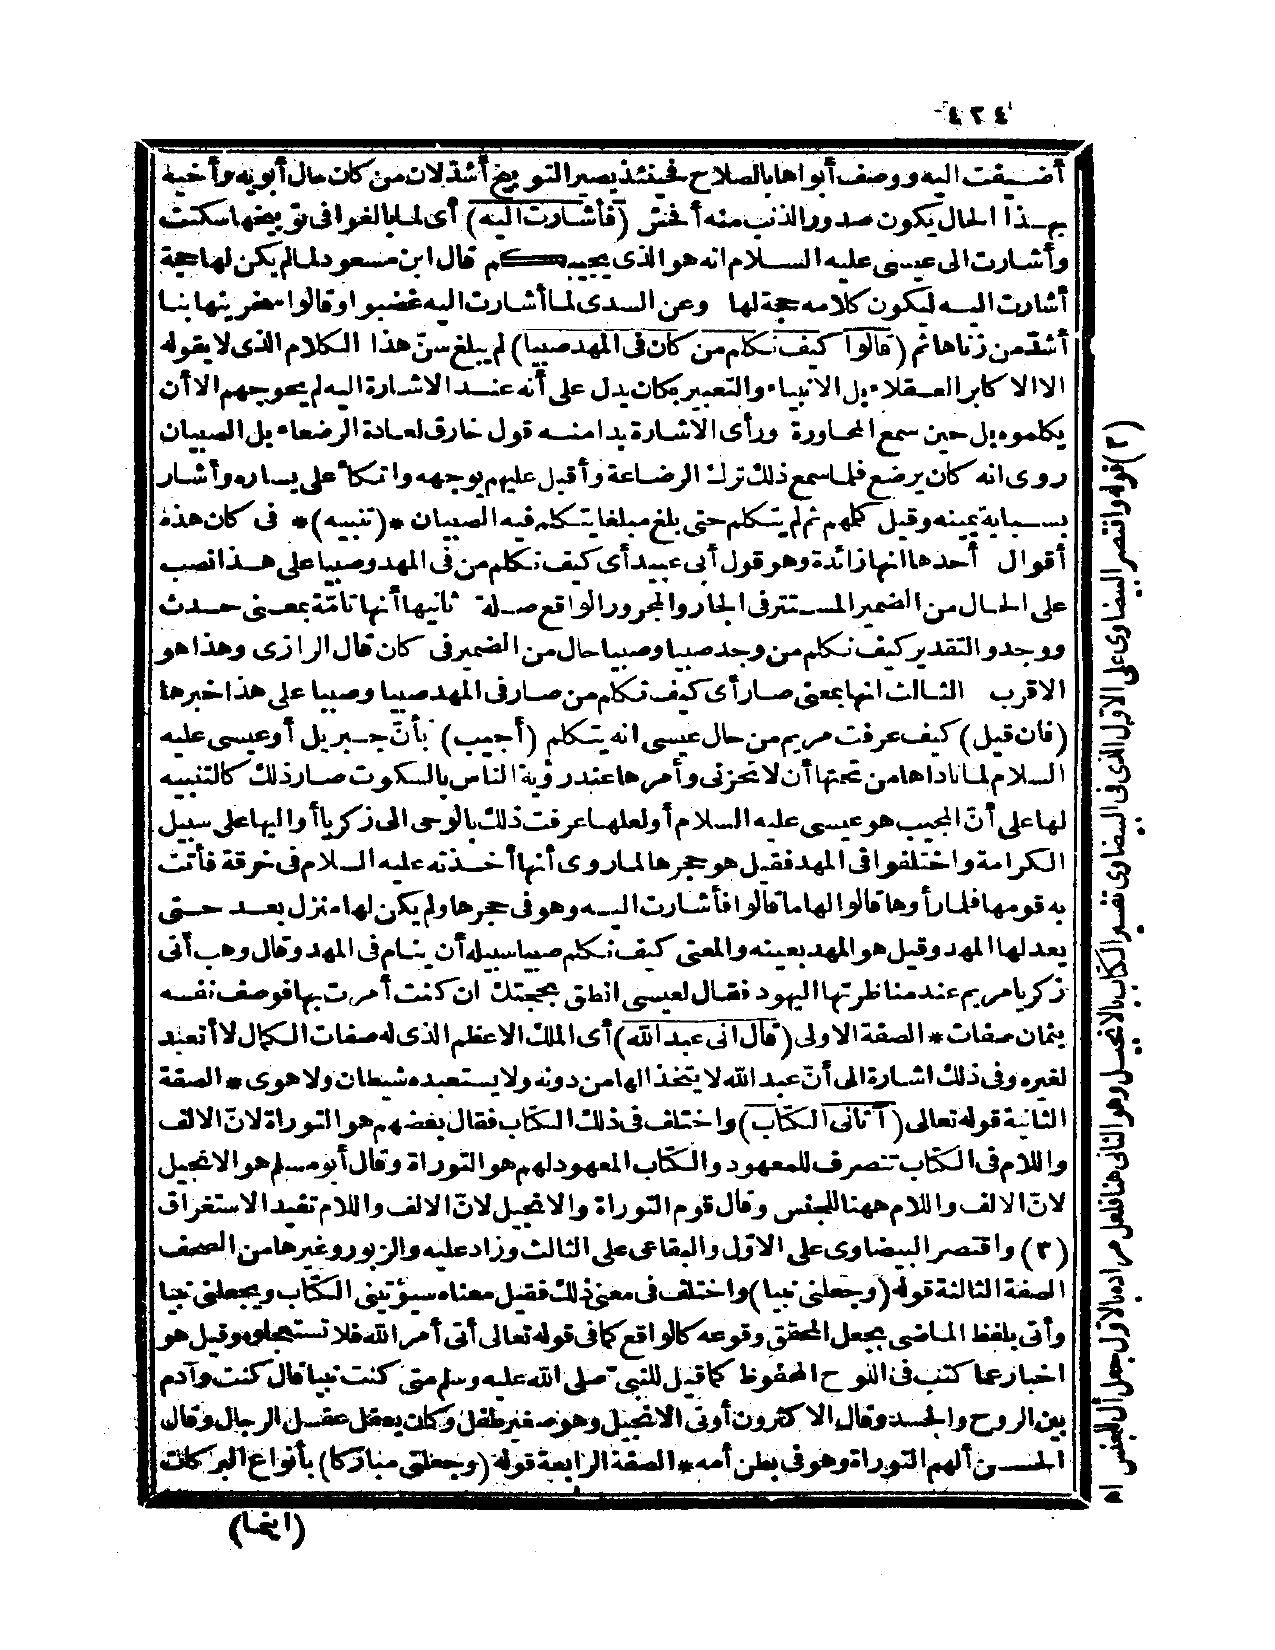 ٤٢٤
أضيفت اليه ووصف أبواها بالصلاح فحينئذ يصير التوبيخ أشدّ لان من كان حال أبويه وأخيه
بهذا الحال يكون صدور الذنب منه أفحش (فأشارت اليه) أى لما بالغوا فى توبيخها سكتت
وأشارت الى عيسى عليه السلام انه هو الذى يجيبكم قال ابن مسعود لما لم يكن لها حجة
أشارت اليه ليكون كلامه حجة لها وعن السدى لما أشارت اليه غضبوا وقالوا سخريتها بنا
أشدّ من زناها ثم (قالوا كيف نكلم من كان فى المهد صبيا) لم يبلغ سنّ هذا الكلام الذى لا يقوله
الا الاكابر العقلاء بل الانبياء والتعبير بكان يدل على أنه عند الاشارة اليه لم يحوجهم الا أن
يكلموه بل حين سمع المحاورة ورأى الاشارة بدا منه قول خارق لعادة الرضعاء بل الصبيان
روى انه كان يرضع فلما سمع ذلك ترك الرضاعة وأقبل عليهم بوجهه واتكأ على يساره وأشار
بسبابة يمينه وقيل كلمهم ثم لم يتكلم حتى بلغ مبلغا يتكلم فيه الصبيان *(تنبيه)* فى كان هذه
أقوال أحدها انها زائدة وهو قول أبى عبيد أى كيف نكلم من فى المهد وصبيا على هذا نصب
على الحال من الضمير المستتر فى الجار والمجرور الواقع صلة ثانيها أنها تامّة بمعنى حدث
ووجد والتقدير كيف نكلم من وجد صبيا وصبيا حال من الضمير فى كان قال الرازى وهذا هو
الاقرب الثالث انها بمعنى صار أى كيف نكلم من صار فى المهد صبيا وصبيا على هذا خبرها
(فان قيل) كيف عرفت مريم من حال عيسى انه يتكلم (أجيب) بأنّ جبريل أو عيسى عليه
السلام لما ناداها من تحتها أن لا تحزنى وأمرها عند رؤية الناس بالسكوت صار ذلك كالتنبيه
لها على أنّ المجيب هو عيسى عليه السلام أو لعلها عرفت ذلك بالوحى الى زكريا أو اليها على سبيل
الكرامة واختلفوا فى المهد فقيل هو حجرها لما روى أنها أخذته عليه السلام فى خرقة فأتت
به قومها فلما رأوها قالوا لها ما قالوا فأشارت اليه وهو فى حجرها ولم يكن لها منزل بعد حتى
يعد لها المهد وقيل هو المهد بعينه والمعنى كيف نكلم صبيا سبيله أن ينام فى المهد وقال وهب أتى
زكريا مريم عند مناظرتها اليهود فقال لعيسى انطق بحجتك ان كنت أمرت بها فوصف نفسه
بثمان صفات * الصفة الاولى (قال انى عبد الله) أى الملك الاعظم الذى له صفات الكمال لا أتعبد
لغيره وفى ذلك اشارة الى أنّ عبد الله لا يتخذ الها من دونه ولا يستعبده شيطان ولا هوى * الصفة
الثانية قوله تعالى (آتانى الكتاب) واختلف فى ذلك الكتاب فقال بعضهم هو التوراة لانّ الالف
واللام فى الكتاب تنصرف للمعهود والكتاب المعهود لهم هو التوراة وقال أبو مسلم هو الانجيل
لانّ الالف واللام ههنا للجنس وقال قوم التوراة والانجيل لانّ الالف واللام تفيد الاستغراق
(٣) واقتصر البيضاوى على الاوّل والبقاعى على الثالث وزاد عليه والزبور وغيرها من الصحف
الصفة الثالثة قوله (وجعلنى نبيا) واختلف فى معنى ذلك فقيل معناه سيؤتينى الكتاب ويجعلنى نبيا
وأتى بلفظ الماضى بجعل المحقق وقوعه كالواقع كما فى قوله تعالى أتى أمر الله فلا تستعجلوه وقيل هو
اخبار عما كتب فى اللوح المحفوظ كما قيل للنبىّ صلى الله عليه وسلم متى كنت نبيا قال كنت وآدم
بين الروح والجسد وقال الاكثرون أوتى الانجيل وهو صغير طفل وكان يعقل عقل الرجال وقال
الحسن ألهم التوراة وهو فى بطن أمه * الصفة الرابعة قوله (وجعلنى مباركا) بأنواع البركات
(اينما)
(٣) قوله واقتصر البيضاوى على الاوّل الذى فى البيضاوى تفسير الكتاب بالانجيل وهو الثانى هنا فلعل مراده بالاوّل جعل أل للجنس اه